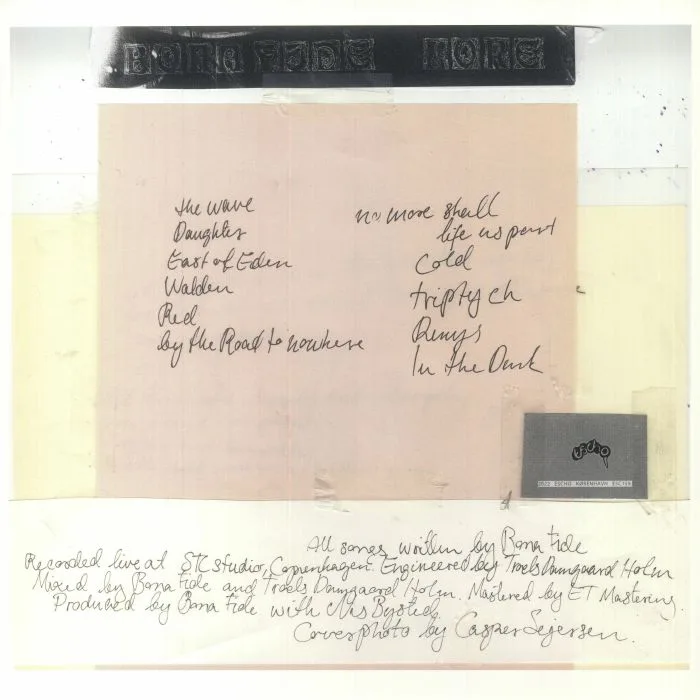 BONA FIDE HOPE
the wave
Daughter
East of Eden
Walden
Red
by the Road to nowhere
no more shall
life us part
Cold
triptych
Remys
In the Dark
escho
2022 ESCHO KØBENHAVN ESC159
All songs written by Bona Fide
Recorded live at STC studio, Copenhagen. Engineered by Troels Damgaard Holm
Mixed by Bona Fide and Troels Damgaard Holm. Mastered by ET Mastering.
Produced by Bona Fide with Nis Bysted.
Coverphoto by Casper Sejersen.